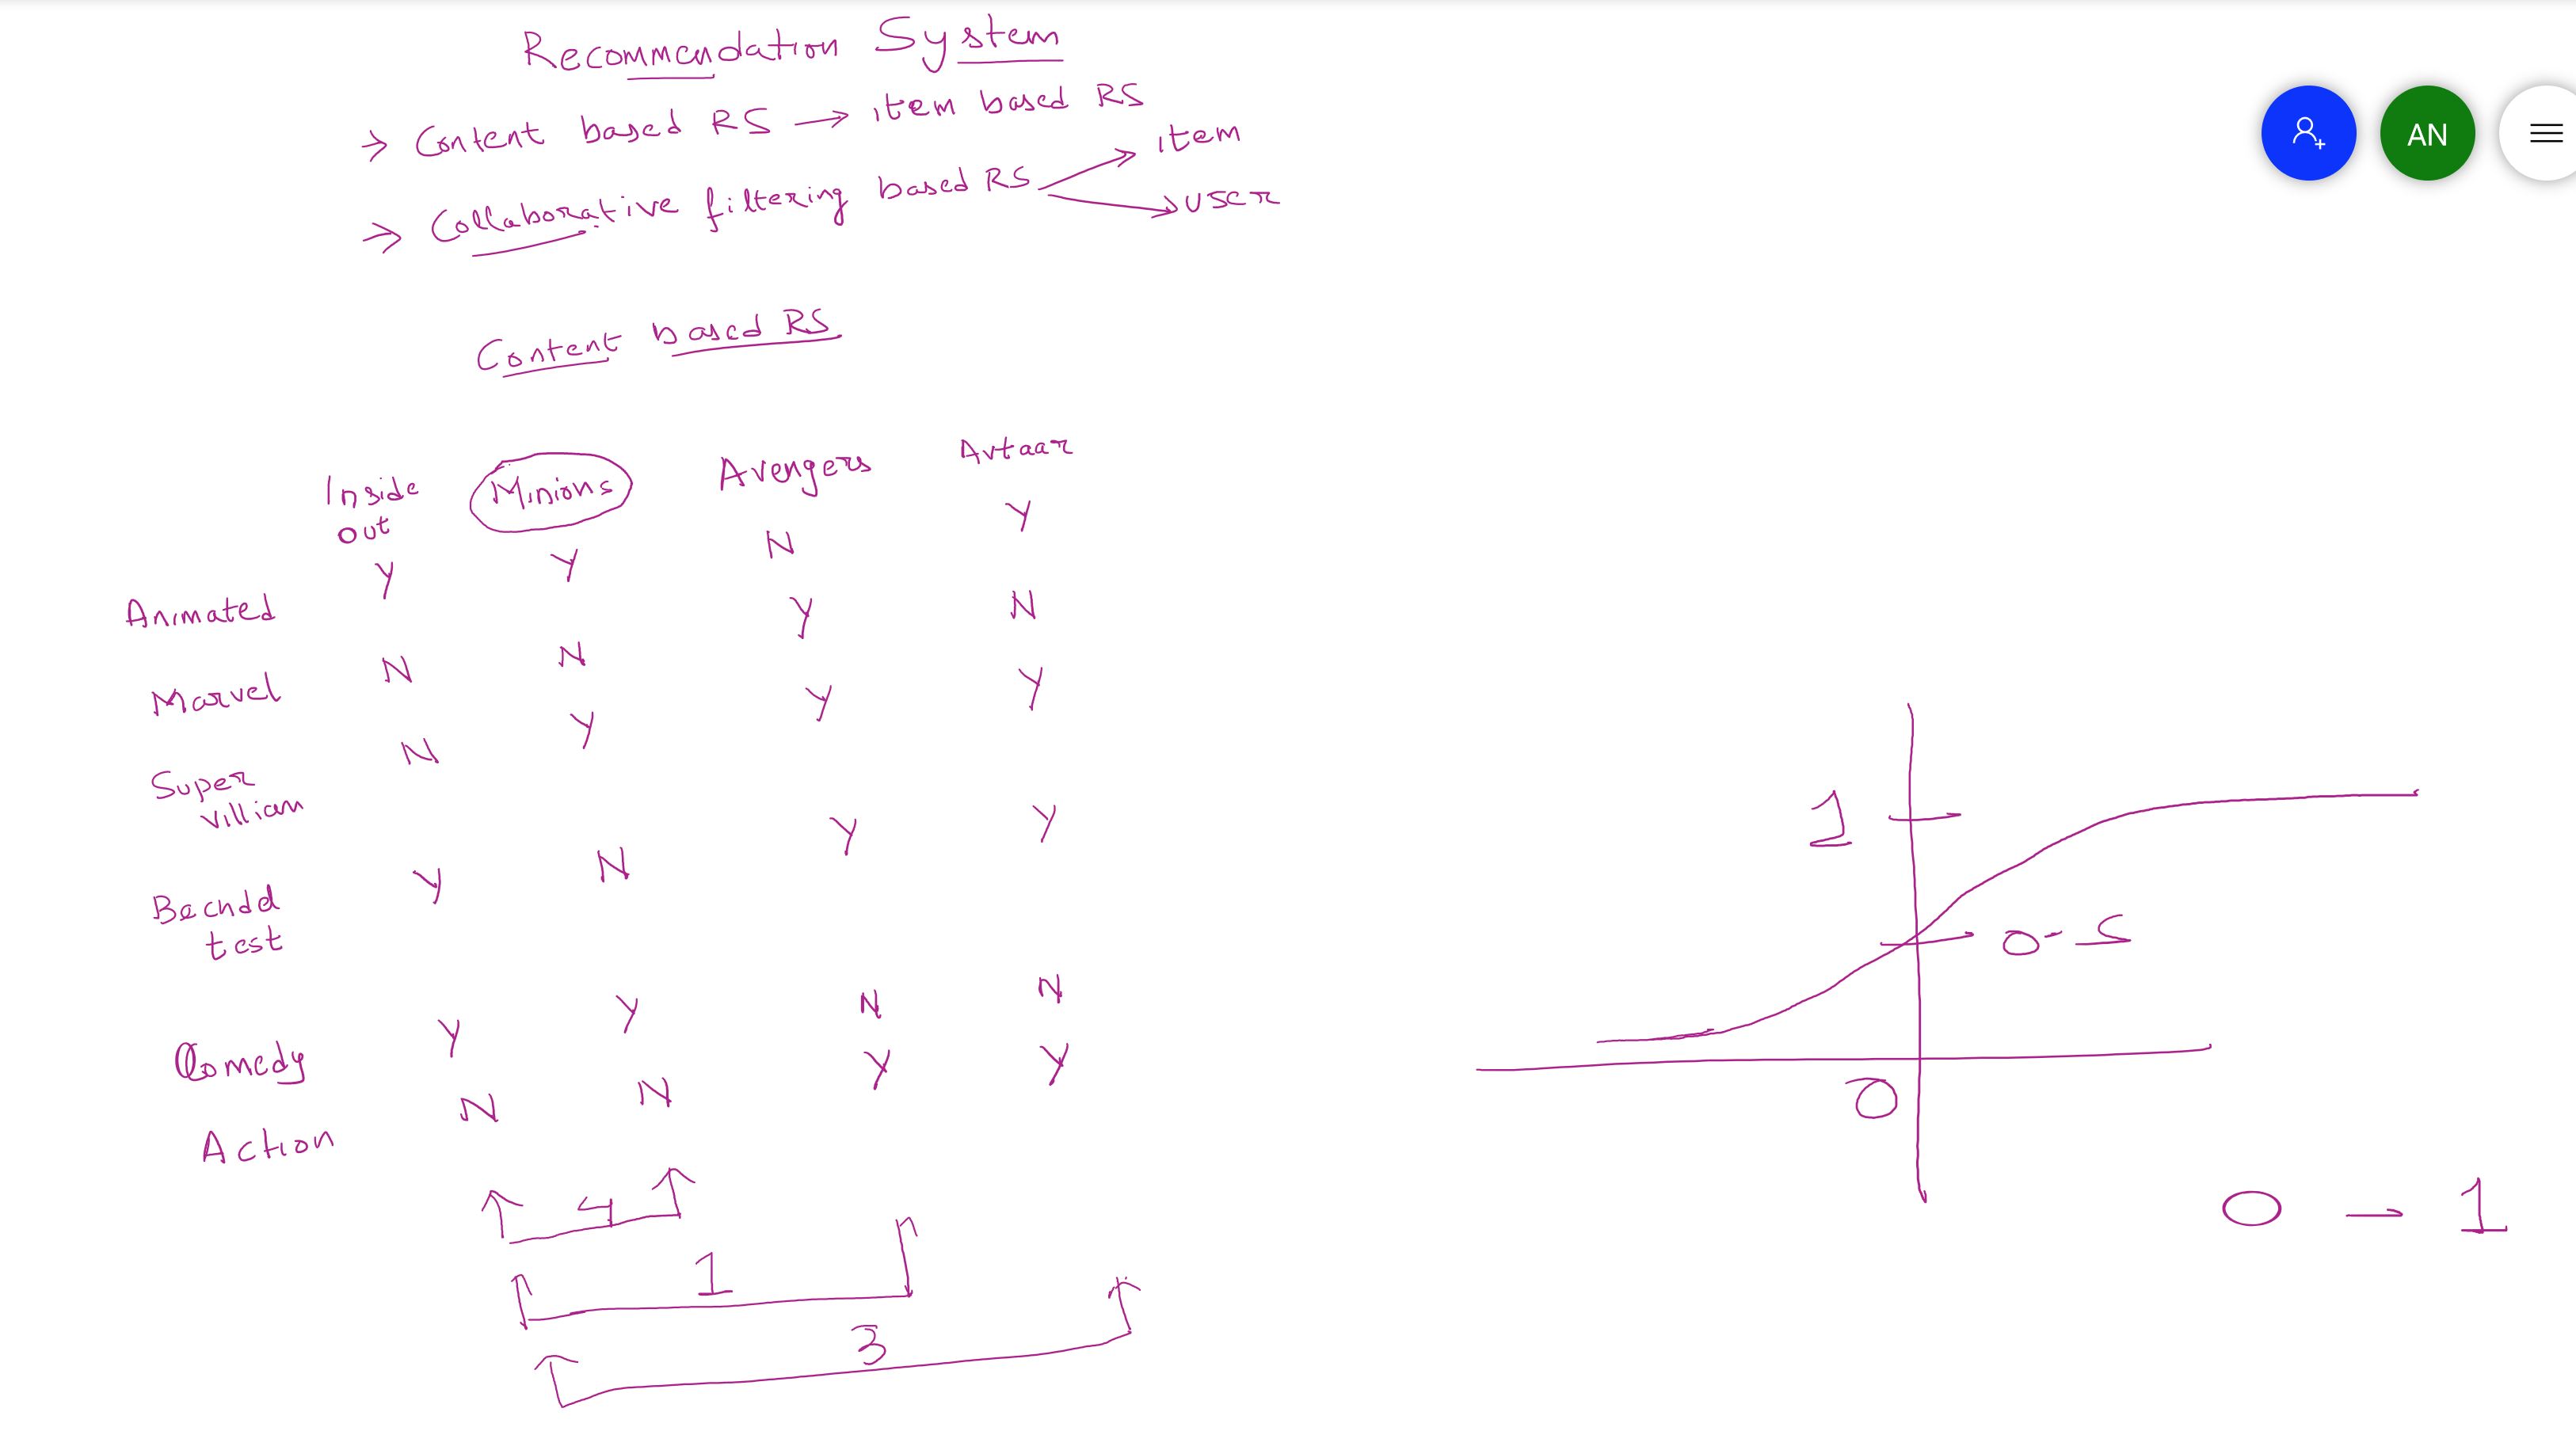 Recommendation System
→ Content based RS → item based RS
→ Collaborative filtering based RS → item
→ user
AN
Content based RS
Inside out Minions Avengers Avtaar
Animated Y Y N Y
Marvel N N Y N
Super villian N Y Y Y
Becndel test Y N Y Y
Comedy Y Y N N
Action N N Y Y
4
1
3
1
0-5
0
0 - 1